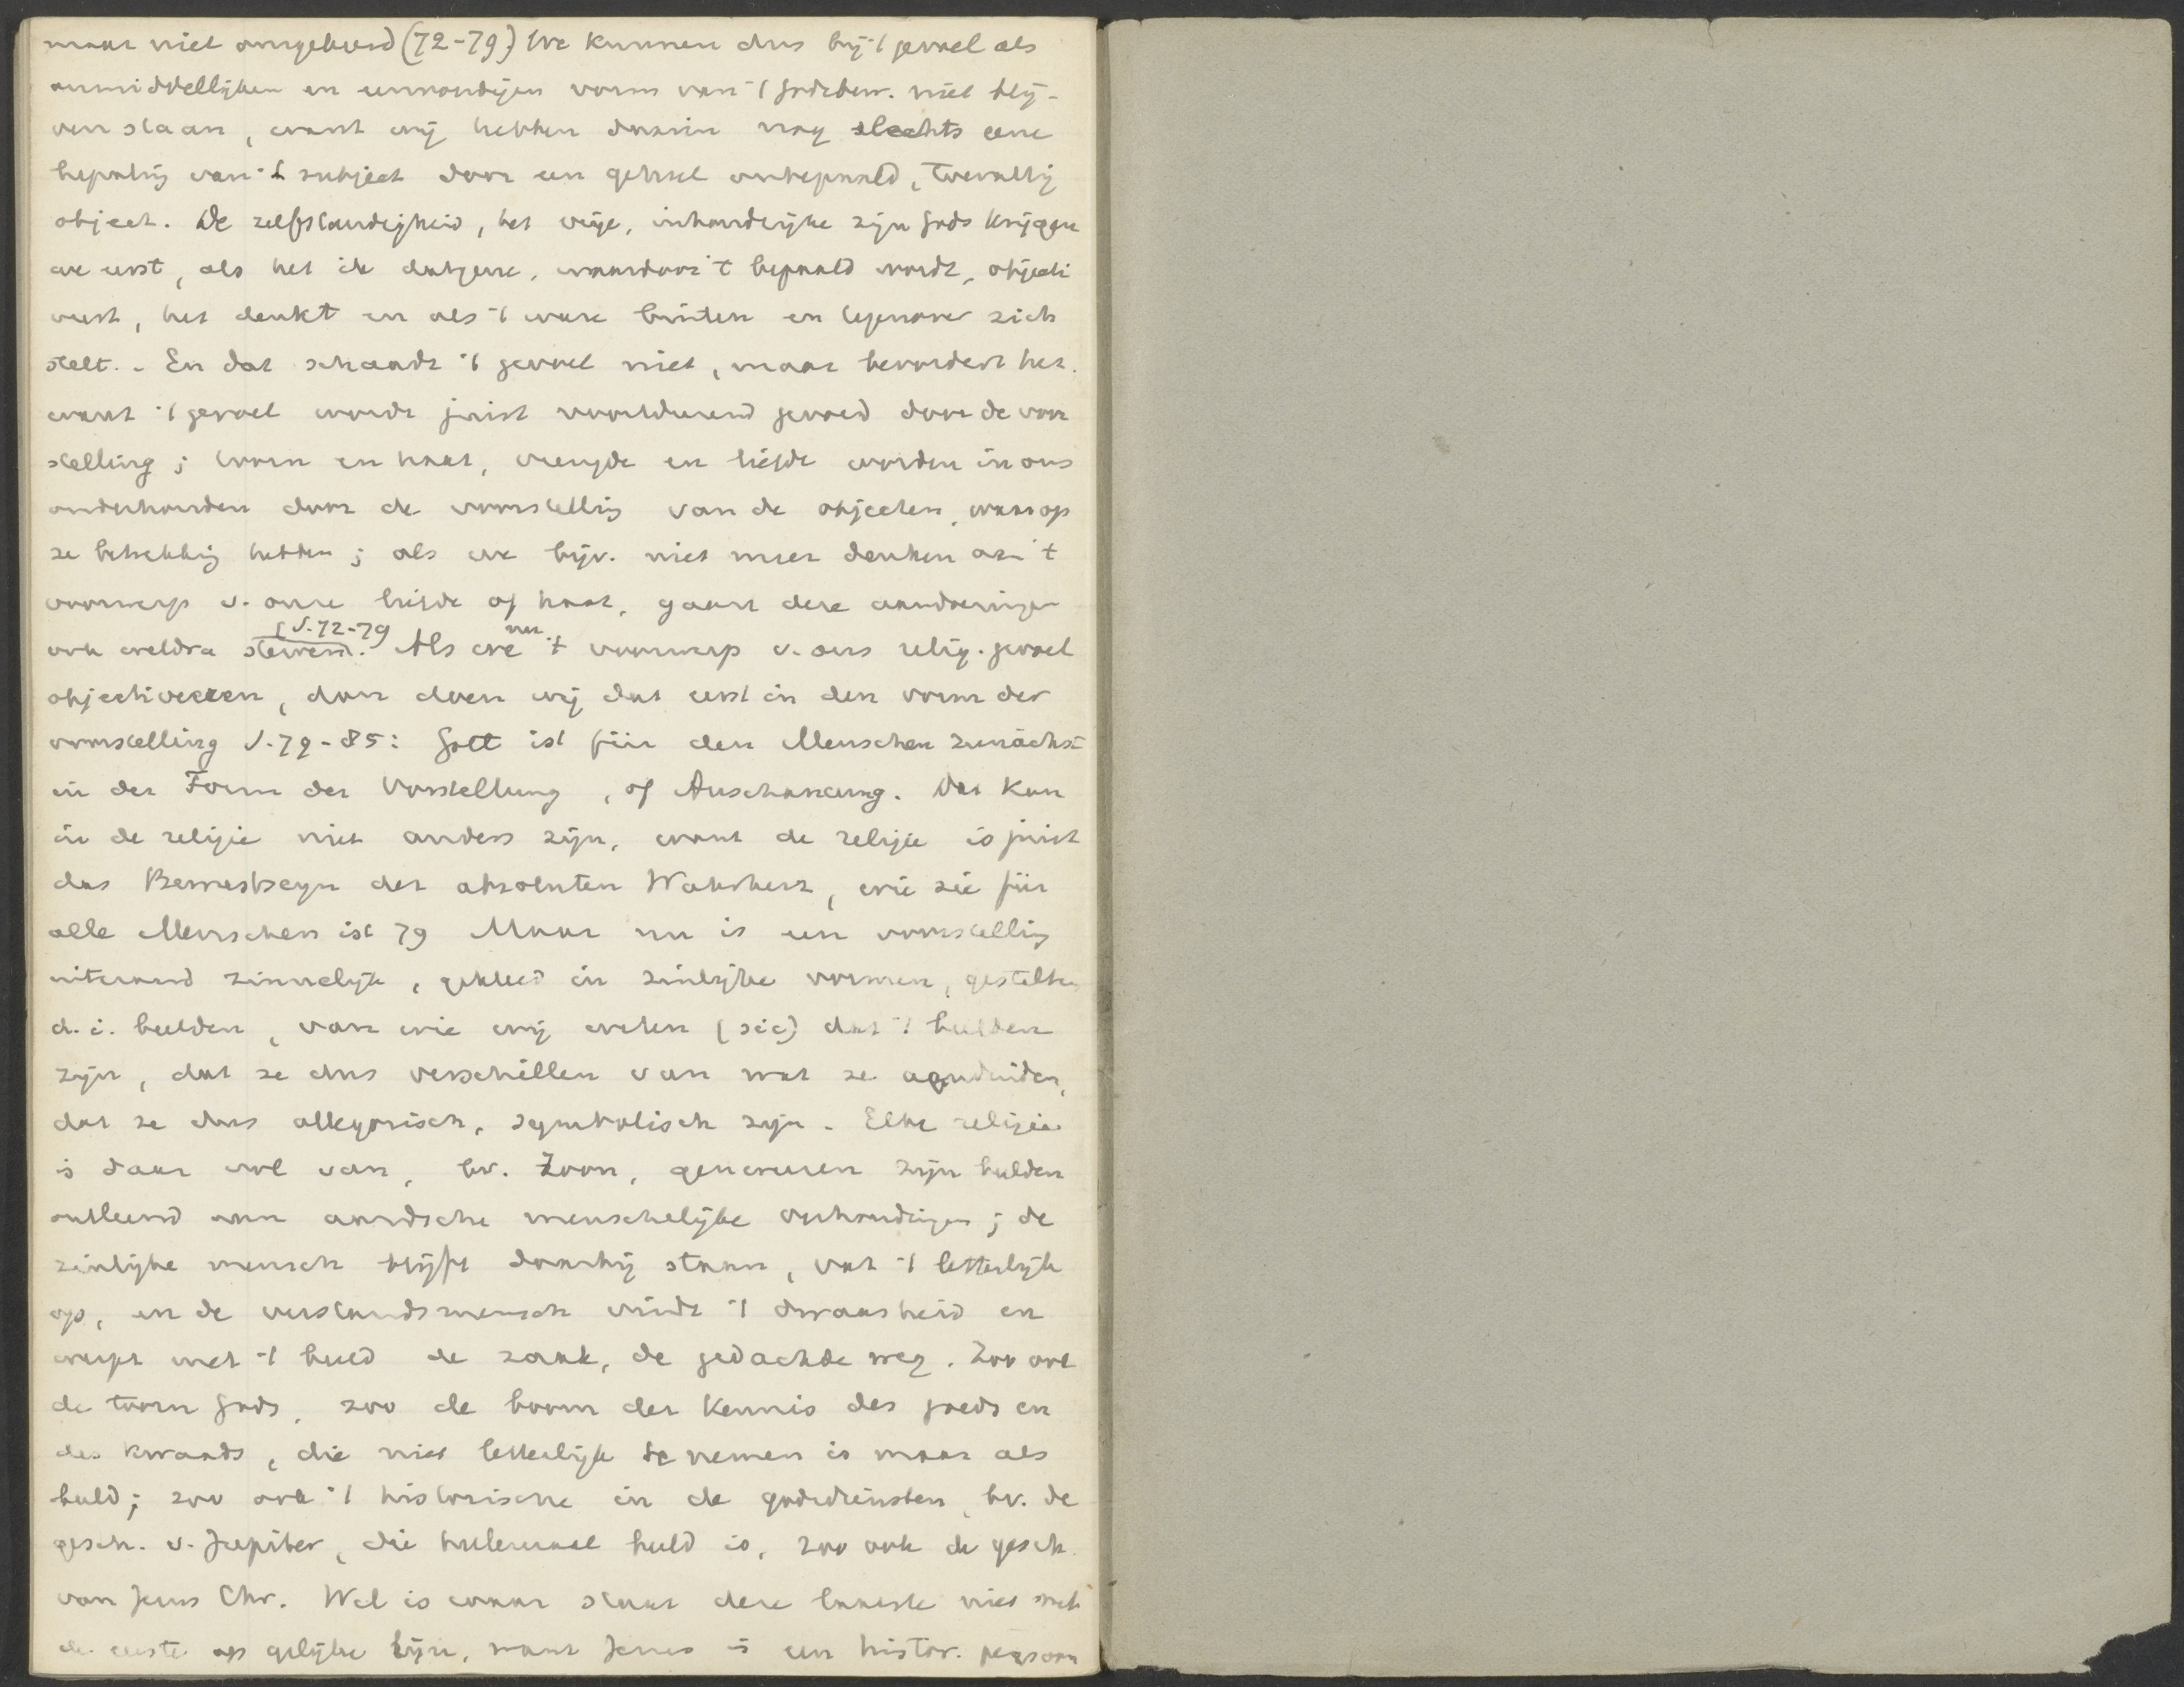 maar niet omgekeerd (72-79) We kunnen dus bij 't gevoel als
onmiddellijken en eenvoudigen vorm van 't godsbew. niet blij-
ven staan, want wij hebben daarin nog slechts eene
bepaling van 't subject door een geheel onbepaald, toevallig
object. De zelfstandigheid, het vrije, inhoudrijke zijn Gods krijgen
we eerst, als het ik datgene, waardoor 't bepaald wordt, objecti
veert, het denkt en als 't ware buiten en tegenover zich
stelt. - En dat schaadt 't gevoel niet, maar bevordert het.
want 't gevoel wordt juist voortdurend gevoed door de voor
stelling; toorn en haat, vreugde en liefde worden in ons
onderhouden door de voorstelling van de objecten, waarop
ze betrekking hebben; als we bijv. niet meer denken aan 't
voorwerp v. onze liefde of haat, gaan deze aandoeningen
ook weldra stervend. S. 72-79 Als we nu 't voorwerp v. ons relig. gevoel
objectiveeren, dan doen wij dat eerst in den vorm der
voorstelling S. 79-85: Gott ist für den Menschen zunächst
in der Form der Vorstellung, of Anschauung. Dat kan
in de religie niet anders zijn, want de religie is juist
das Bewustseyn der absoluten Wahrheit, wie sie für
alle Menschen ist 79 Maar nu is een voorstelling
uiteraard zinnelijk, gekleed in zinlijke vormen, gestalten
d. i. beelden, van wie wij weten (sic) dat 't beelden
zijn, dat ze dus verschillen van wat ze aanduiden,
dat ze dus allegorisch, symbolisch zijn. Elke religie
is daar vol van, bv. Zoon, genereeren zijn beelden
ontleend aan aardsche menschelijke verhoudingen; de
zinlijke mensch blijft daarbij staan, vat 't letterlijk
op, en de verstandsmensch vindt 't dwaasheid en
werpt met 't beeld de zaak, de gedachte weg. Zoo ook
de toorn Gods, zoo de boom der kennis des goeds en
des kwaads, die niet letterlijk te nemen is maar als
beeld; zoo ook 't historische in de godsdiensten, bv. de
gesch. v. Jupiter, die heelemaal beeld is, zoo ook de gesch.
van Jezus Chr. Wel is waar staat deze laatste niet met
de eerste op gelijke lijn, want Jezus is een histor. persoon